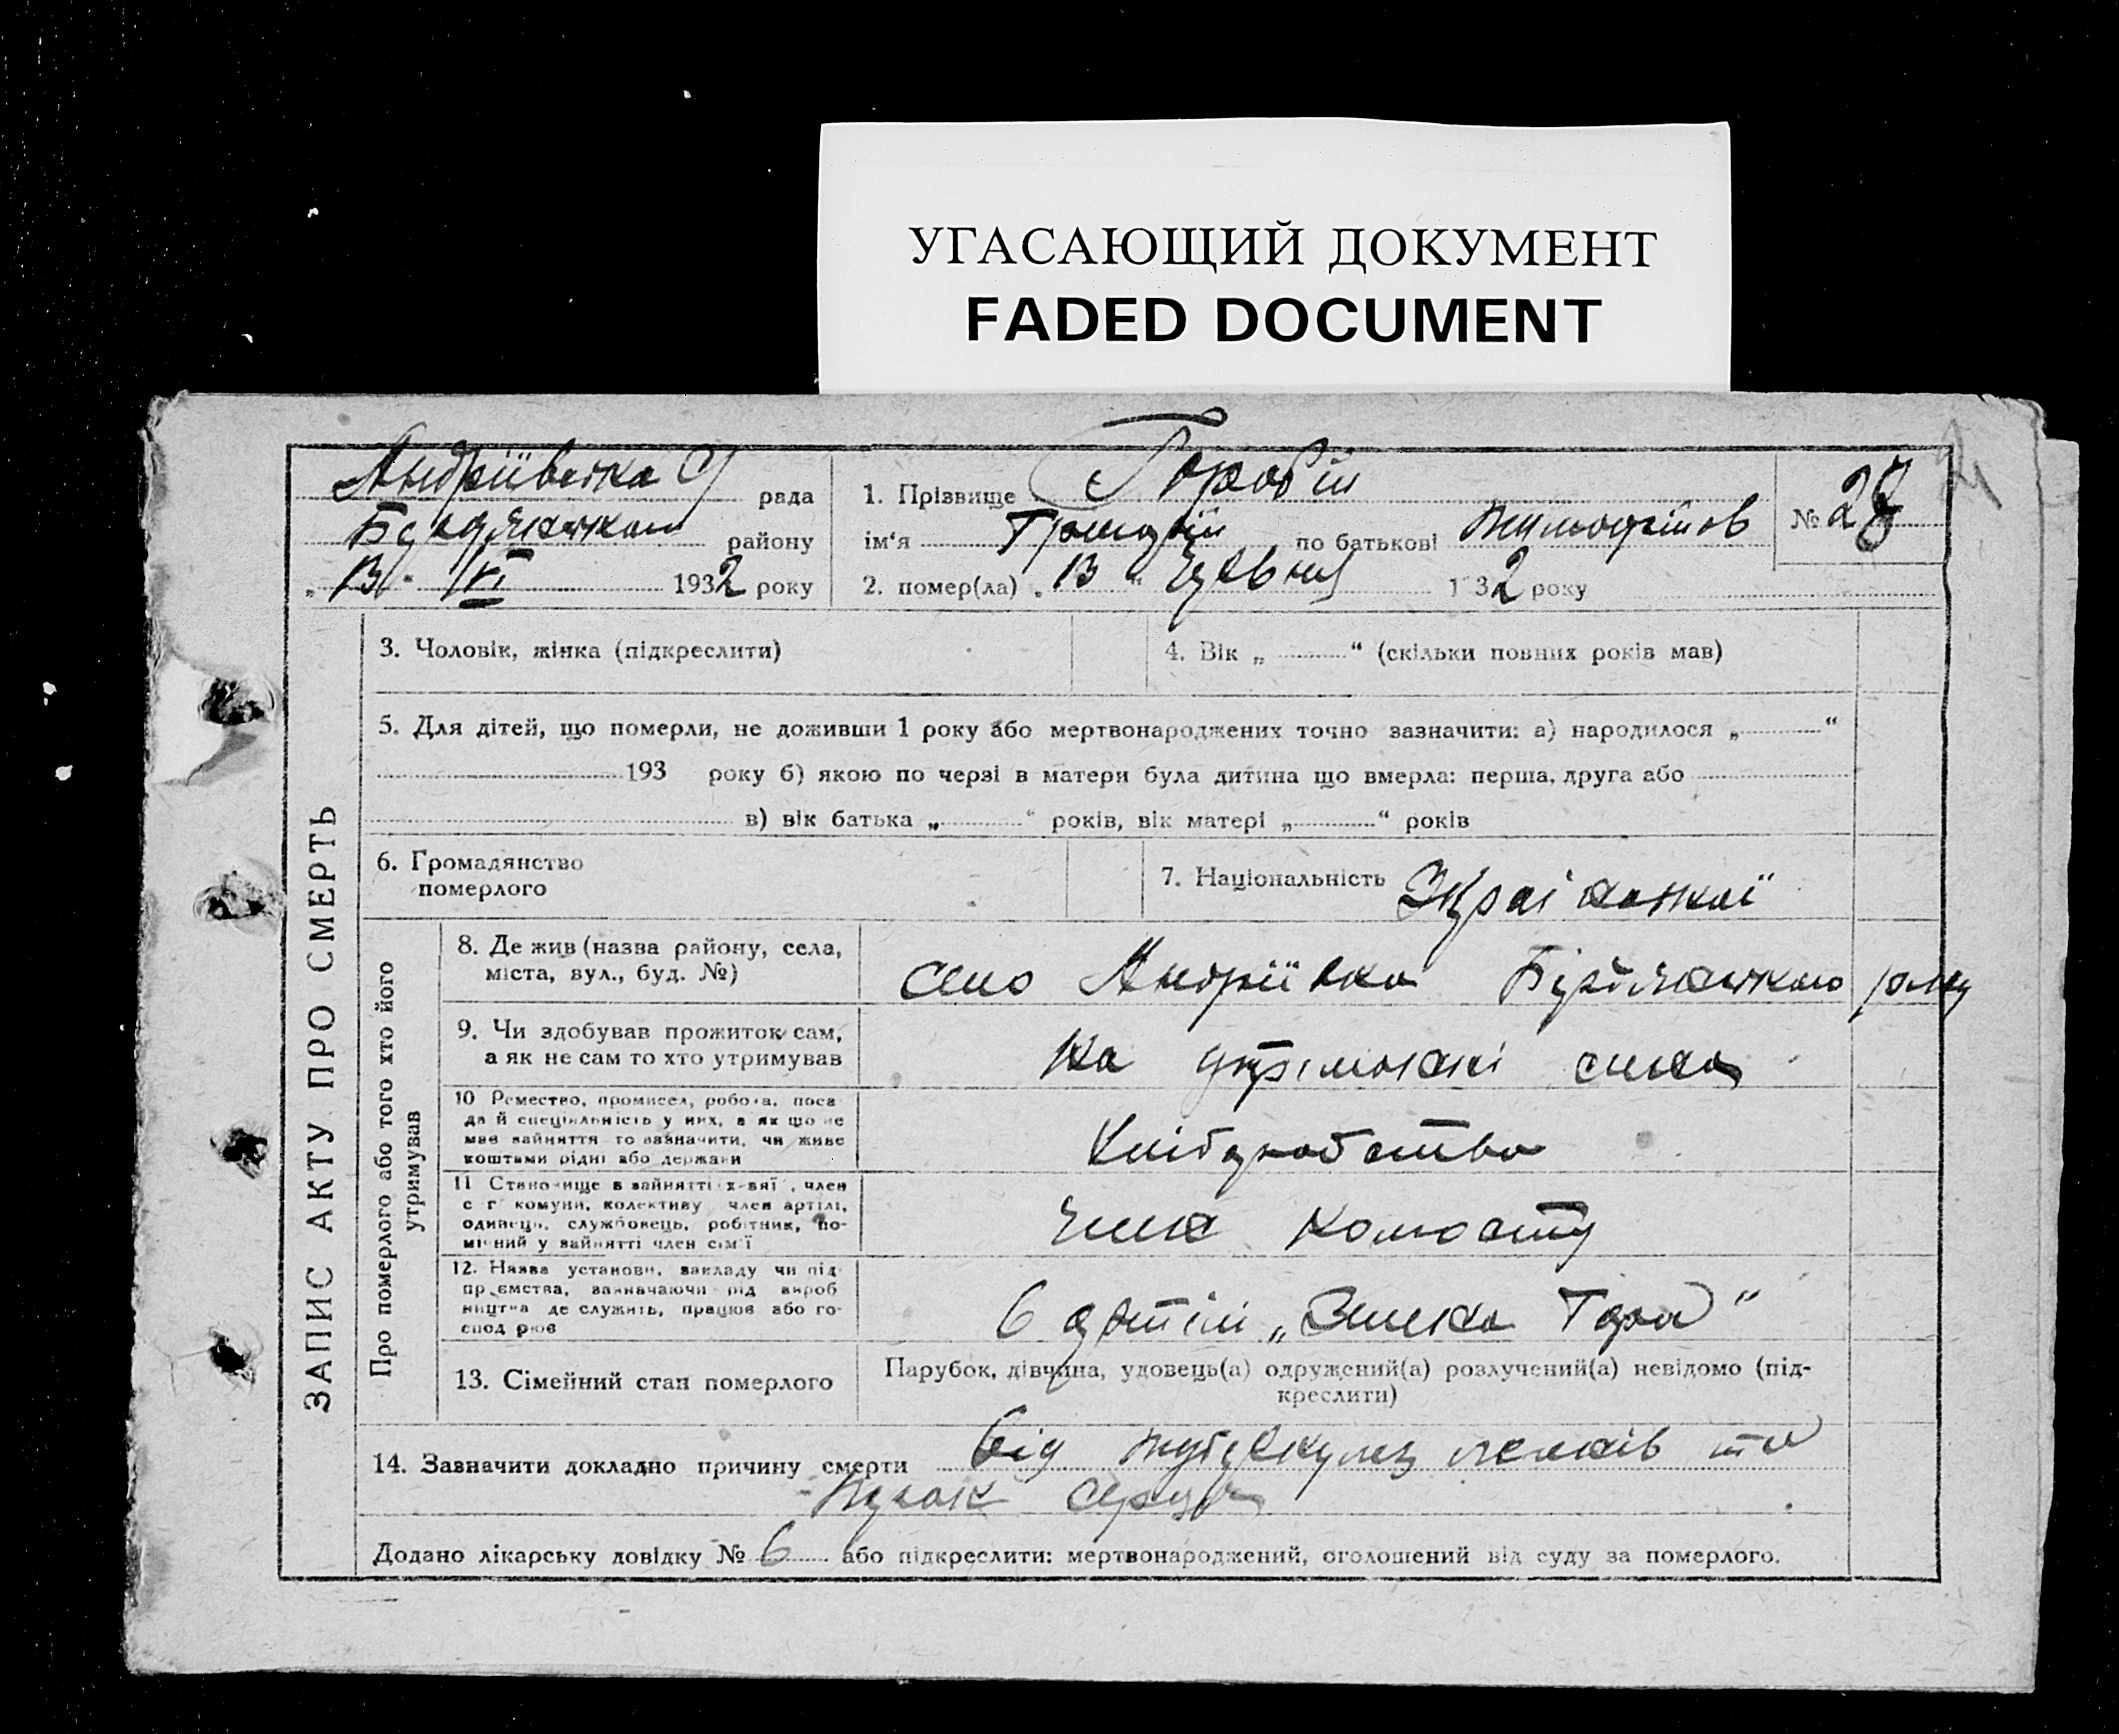 УГАСАЮЩИЙ ДОКУМЕНТ
FADED DOCUMENT
ЗАПИС АКТУ ПРО СМЕРТЬ
Андріївська С/ рада
району
„ 13 " VI 1932 року
1. Прізвище Горобій
ім‘я по батькові Тимофіїов
2. помер(ла) „ 13 " Червня 1932 року
№ 28
3. Чоловік, жінка (підкреслити)
4. Вік „ “ (скільки повних років мав)
5. Для дітей, що померли, не доживши 1 року або мертвонароджених точно зазначити: а) народилося „ “
193 року б) якою по черзі в матери була дитина що вмерла: перша, друга або
в) вік батька „ “ років, вік матері „ “ років
6. Громадянство
померлого
7. Національність Українскої
Про померлого або того хто його
утримував
8. Де жив (назва району, села,
міста, вул., буд. №)
село Андріївка р-ну
9. Чи здобував прожиток сам,
а як не сам то хто утримував
На утріманні сина
10 Ремество, промисел, робота, поса
да й спеціяльність у них, а як що не
має зайняття то зазначити, чи живе
коштами рідні або держави
Хліборобство
11 Становище в зайнятті х-зяї , член
с г комуни, колективу член артілі,
одинець, службовець, робітник, по-
мічний у зайнятті член сім'ї
Член
12. Назва установи, закладу чи під-
приємства, зазначаючи рід вироб
ництва де служить, працює або го-
спод рює
в артілі „ Гора"
13. Сімейний стан померлого
Парубок, дівчина, удовець(а) одружений(а) розлучений(а) невідомо (під-
креслити)
14. Зазначити докладно причину смерти від туберкулез легенів та
серця
Додано лікарську довідку № 6 або підкреслити: мертвонароджений, оголошений від суду за померлого.